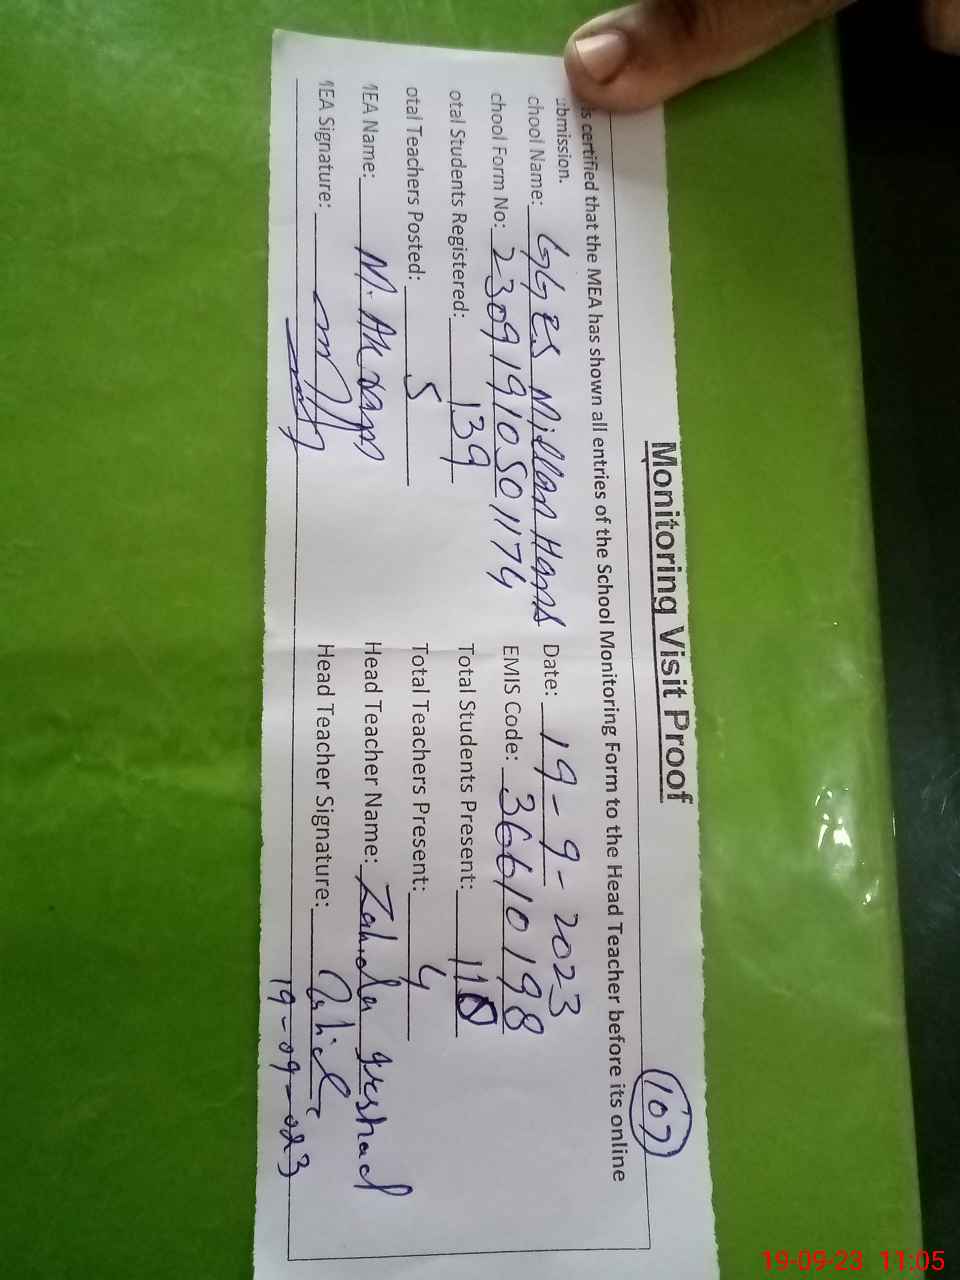 Monitoring Visit Proof
107
is certified that the MEA has shown all entries of the School Monitoring Form to the Head Teacher before its online
ubmission.
chool Name: GGES Millan Hans Date: 19-9-2023
chool Form No: 2309191050 1174 EMIS Code: 36610198
otal Students Registered: 139 Total Students Present: 110
otal Teachers Posted: 5 Total Teachers Present: 4
MEA Name: M. Head Teacher Name: Zahida Irshad
MEA Signature: Head Teacher Signature: Zahida
19-09-023
19-09-23 11:05